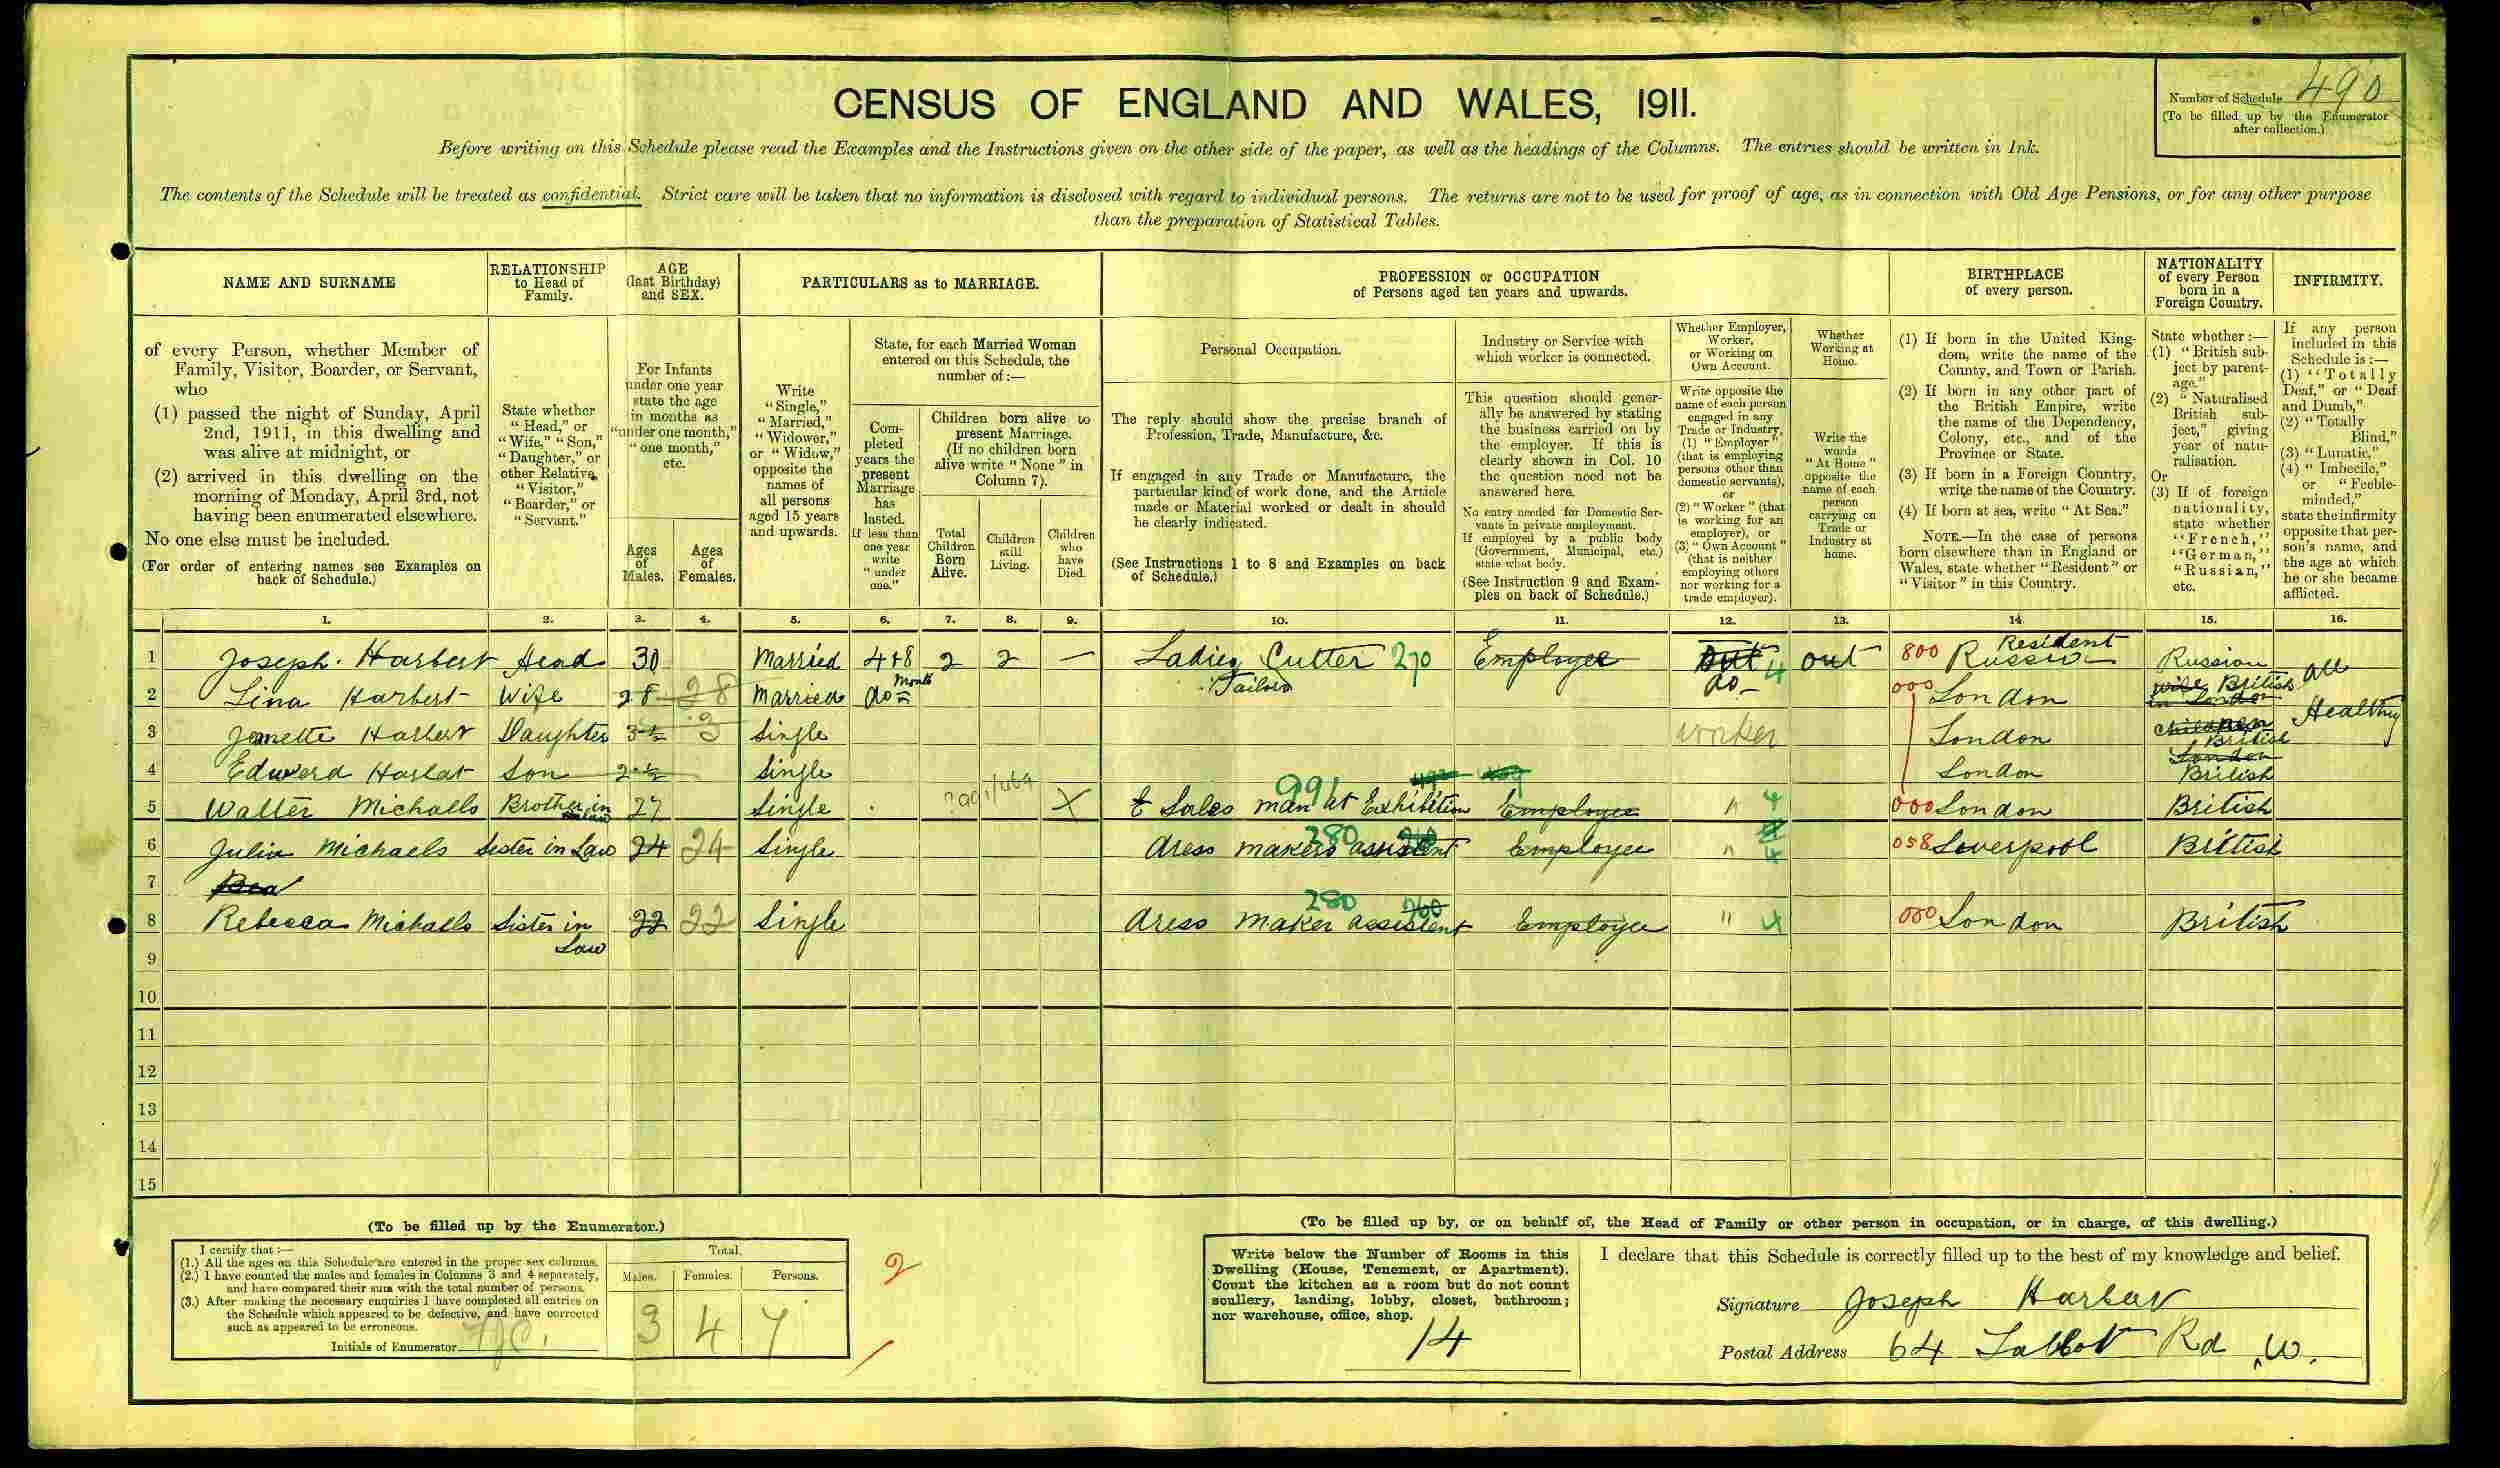 CENSUS OF ENGLAND AND WALES, 1911.
Number of Schedule 490
(To be filled up by the Enumerator
after collection.)
Before writing on this Schedule please read the Examples and the Instructions given on the other side of the paper, as well as the headings of the Columns. The entries should be written in Ink.
The contents of the Schedule will be treated as confidential. Strict care will be taken that no information is disclosed with regard to individual persons. The returns are not to be used for proof of age, as in connection with Old Age Pensions, or for any other purpose
than the preparation of Statistical Tables.
NAME AND SURNAME
of every Person, whether Member of
Family, Visitor, Boarder, or Servant,
who
(1) passed the night of Sunday, April
2nd, 1911, in this dwelling and
was alive at midnight, or
(2) arrived in this dwelling on the
morning of Monday, April 3rd, not
having been enumerated elsewhere.
No one else must be included.
(For order of entering names see Examples on
back of Schedule.)
RELATIONSHIP
to Head of
Family.
State whether
"Head," or
"Wife," "Son,"
"Daughter," or
other Relative,
"Visitor,"
"Boarder," or
"Servant."
AGE
(last Birthday)
and SEX.
For Infants
under one year
state the age
in months as
"under one month,"
"one month,"
etc.
Ages
of
Males.
Ages
of
Females.
PARTICULARS as to MARRIAGE.
Write
"Single,"
"Married,"
"Widower,"
or "Widow,"
opposite the
names of
all persons
aged 15 years
and upwards.
State, for each Married Woman
entered on this Schedule, the
number of:—
Com-
pleted
years the
present
Marriage
has
lasted.
If less than
one year
write
"under
one."
Children born alive to
present Marriage.
(If no children born
alive write "None" in
Column 7).
Total
Children
Born
Alive.
Children
still
Living.
Children
who
have
Died.
PROFESSION or OCCUPATION
of Persons aged ten years and upwards.
Personal Occupation.
The reply should show the precise branch of
Profession, Trade, Manufacture, &c.
If engaged in any Trade or Manufacture, the
particular kind of work done, and the Article
made or Material worked or dealt in should
be clearly indicated.
(See Instructions 1 to 8 and Examples on back
of Schedule.)
Industry or Service with
which worker is connected.
This question should gener-
ally be answered by stating
the business carried on by
the employer. If this is
clearly shown in Col. 10
the question need not be
answered here.
No entry needed for Domestic Ser-
vants in private employment.
If employed by a public body
(Government, Municipal, etc.)
state what body.
(See Instruction 9 and Exam-
ples on back of Schedule.)
Whether Employer,
Worker,
or Working on
Own Account.
Write opposite the
name of each person
engaged in any
Trade or Industry,
(1) "Employer"
(that is employing
persons other than
domestic servants),
or
(2) "Worker" (that
is working for an
employer), or
(3) "Own Account"
(that is neither
employing others
nor working for a
trade employer).
Whether
Working at
Home.
Write the
words
"At Home"
opposite the
name of each
person
carrying on
Trade or
Industry at
home.
BIRTHPLACE
of every person.
(1) If born in the United King-
dom, write the name of the
County, and Town or Parish.
(2) If born in any other part of
the British Empire, write
the name of the Dependency,
Colony, etc., and of the
Province or State.
(3) If born in a Foreign Country,
write the name of the Country.
(4) If born at sea, write "At Sea."
NOTE.—In the case of persons
born elsewhere than in England or
Wales, state whether "Resident" or
"Visitor" in this Country.
NATIONALITY
of every Person
born in a
Foreign Country.
State whether:—
(1) "British sub-
ject by parent-
age."
(2) "Naturalised
British sub-
ject," giving
year of natu-
ralisation.
Or
(3) If of foreign
nationality,
state whether
"French,"
"German,"
"Russian,"
etc.
INFIRMITY.
If any person
included in this
Schedule is:—
(1) "Totally
Deaf," or "Deaf
and Dumb,"
(2) "Totally
Blind,"
(3) "Lunatic,"
(4) "Imbecile,"
or "Feeble-
minded,"
state the infirmity
opposite that per-
son's name, and
the age at which
he or she became
afflicted.
1. 2. 3. 4. 5. 6. 7. 8. 9. 10. 11. 12. 13. 14. 15. 16.
1 Joseph Harbert Head 30 Married 4+8 2 2 — Ladies Cutter 270 Employee out 4 out 800 Russia Resident Russian All
Month Tailors
2 Lina Harbert Wife 28 28 Married do do 000 London wife British in London
3 Jennette Harbert Daughter 3½ 3 Single worker London children British Healthy
4 Edward Harbert Son 2½ Single London London British
5 Walter Michaels Brother in Law 27 Single X Sales man at Exhibition 991 Employee " 4 000 London British
6 Julia Michaels Sister in Law 24 24 Single dress makers assistent 280 Employee " 4 058 Loverpool British
7 Bea
8 Rebecca Michaels Sister in 22 22 Single dress maker assistent 280 260 Employee " 4 000 London British
Law
9
10
11
12
13
14
15
(To be filled up by the Enumerator.)
I certify that:—
(1.) All the ages on this Schedule are entered in the proper sex columns.
(2.) I have counted the males and females in Columns 3 and 4 separately,
and have compared their sum with the total number of persons.
(3.) After making the necessary enquiries I have completed all entries on
the Schedule which appeared to be defective, and have corrected
such as appeared to be erroneous.
Initials of Enumerator
Total.
Males. Females. Persons.
3 4 7
2
(To be filled up by, or on behalf of, the Head of Family or other person in occupation, or in charge, of this dwelling.)
Write below the Number of Rooms in this
Dwelling (House, Tenement, or Apartment).
Count the kitchen as a room but do not count
scullery, landing, lobby, closet, bathroom;
nor warehouse, office, shop.
14
I declare that this Schedule is correctly filled up to the best of my knowledge and belief.
Signature Joseph Harbert
Postal Address 64 Talbot Rd W.